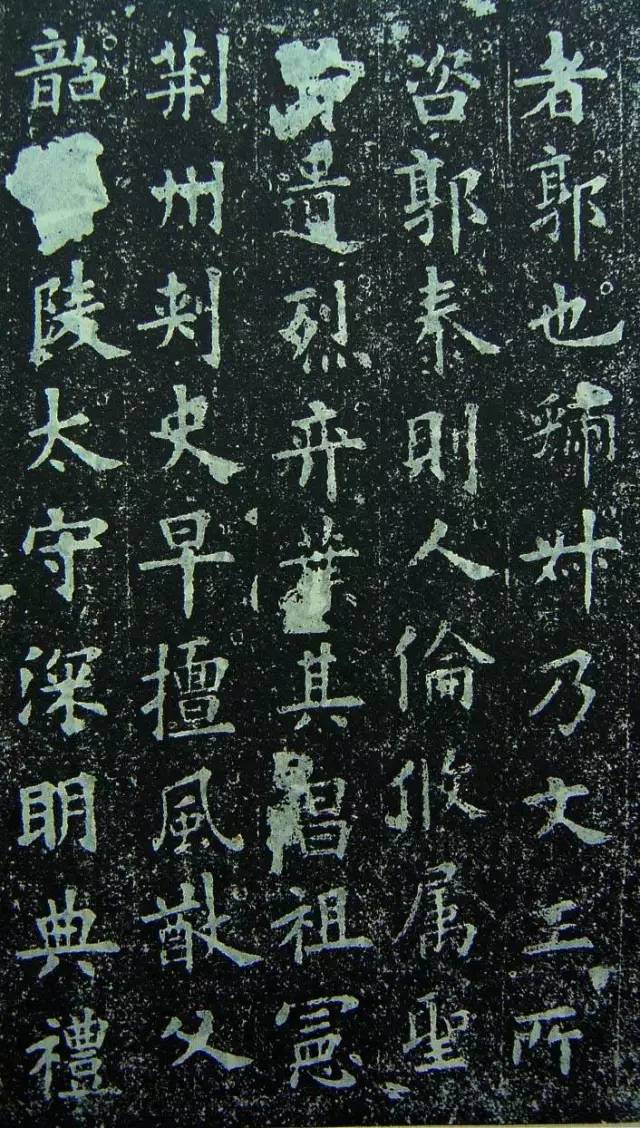 者郭也虢叔乃文王所
咨郭泰則人倫攸属聖
遺烈弈葉其昌祖憲
荆州刺史早擅風猷父
韶陵太守深明典禮